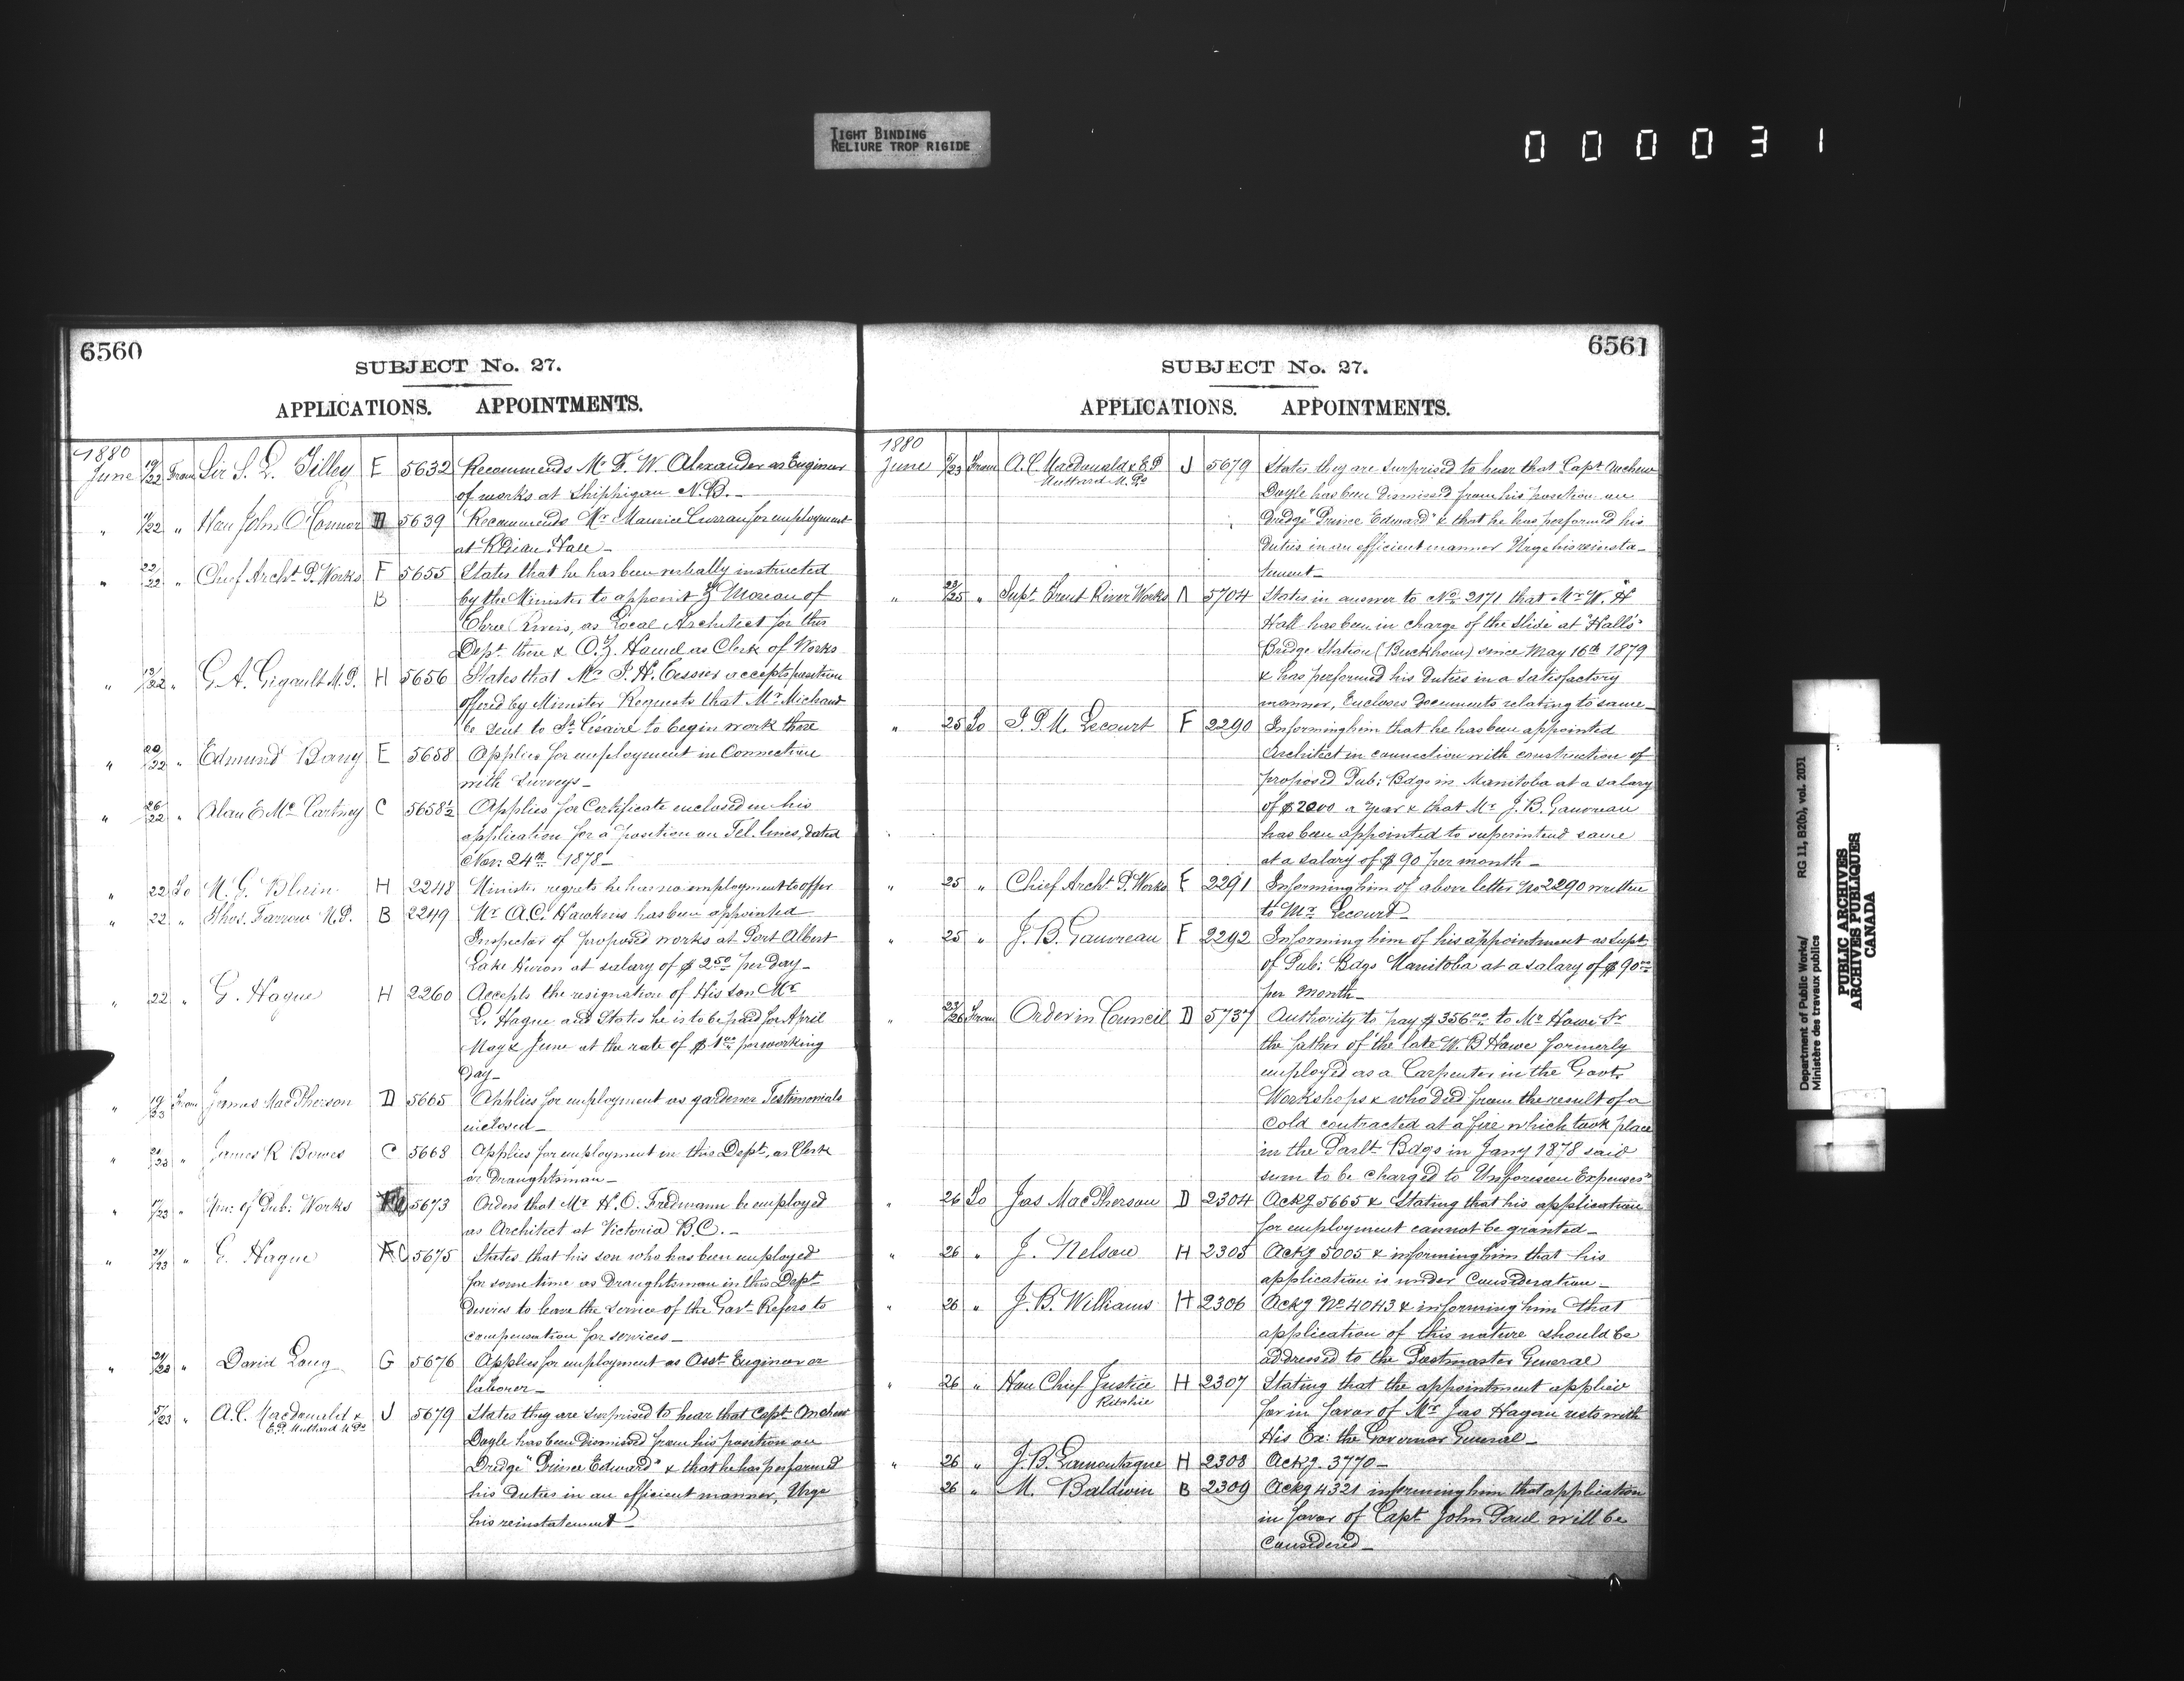 TIGHT BINDING
RELIURE TROP RIGIDE
000031
6560
SUBJECT No. 27.
APPLICATIONS. APPOINTMENTS.
1880
June 19/22 From Sir S. L. Tilley E 5632 Recommends Mr F. W. Alexander as Engineer
of works at Shippigan N.B. _
" /22 " Hon John O'Connor D 5639 Recommends Mr Maurice Curran for employment
at Rideau Hall _
" 22/22 " Chief Archt P. Works F 5655 States that he has been verbally instructed
B by the Minister to appoint Z Moreau of
Three Rivers, as Local Architect for this
Dept there & O. Z. Hamel as Clerk of Works
" 13/22 " G. A. Gigault M.P. H 5656 States that Mr J. H. Cessier accepts position
offered by Minister Requests that Mr Michaud
be sent to St Césaire to begin work there
" 20/22 " Edmund Barry E 5658 Applies for employment in Connection
with Surveys _
" 26/22 " Alan E McCartney C 5658½ Applies for Certificate enclosed in his
application for a position on Tel. lines, dated
Nov: 24th 1878 _
" 22 To M. G. Blain H 2248 Minister regrets he has no employment to offer
" 22 " Thos. Farrow M.P. B 2249 Mr A.C. Hawkins has been appointed
Inspector of proposed works at Port Albert
Lake Huron at salary of $2.50 per day _
" 22 " G. Hague H 2260 Accepts the resignation of His son Mr
L. Hague and States he is to be paid for April
May & June at the rate of $1.00 per working
Day _
" 19/23 From James MacPherson D 5665 Applies for employment as gardener Testimonials
inclosed _
" 21/23 " James R Bowes C 5668 Applies for employment in this Dept, as Clerk
or Draughtsman _
" 17/23 " Min: of Pub: Works 5673 Orders that Mr H. O. Tiedmann be employed
as Architect at Victoria B.C. _
" 21/23 " G. Hague C 5675 States that his son who has been employed
for some time as Draughtsman in this Dept
desires to leave the service of the Govt Refers to
compensation for services _
" 21/23 " David Lang G 5676 Applies for employment as Asst Engineer or
laborer _
5/23 " A. C. Macdonald & J 5679 States they are surprised to hear that Capt. Anchew
E.P. Muttard M.Ps Doyle has been dismissed from his position on
Dredge "Prince Edward" & that he has performed
his duties in an efficient manner, Urge
his reinstatement _
6561
SUBJECT No. 27.
APPLICATIONS. APPOINTMENTS.
1880
June 5/23 From A. C. Macdonald & E.P J 5679 States they are surprised to hear that Capt Anchew
Muttard M.Ps Doyle has been dismissed from his position on
Dredge "Prince Edward" & that he has performed his
Duties in an efficient manner Urge his reinsta_
tement _
" 23/25 " Supt Trent River Works A 5704 States in answer to No 2171 that Mr W. H
Hall has been in charge of the Slide at "Hall's"
Bridge Station (Buckhorn) since May 16th 1879
& has performed his Duties in a satisfactory
manner, Encloses Documents relating to same _
" 25 To J. P. M. Lecourt F 2290 Informing him that he has been appointed
Architect in connection with construction of
proposed Pub: Bdgs in Manitoba at a salary
of $2000 a year & that Mr J. B. Gauvreau
has been appointed to superintend same
at a salary of $90 per month _
" 25 " Chief Archt P. Works F 2291 Informing him of above letter No 2290 written
to Mr Lecourt _
" 25 " J. B. Gauvreau F 2292 Informing him of his appointment as Supt
of Pub: Bdgs Manitoba at a salary of $90.00
per Month _
" 23/26 From Order in Council D 5737 Authority to pay $356.00 to Mr Howe Sr
the father of the late W. B Howe formerly
employed as a Carpenter in the Govt
Workshops & who died from the result of a
Cold contracted at a fire which took place
in the Parlt Bdgs in Jany 1878 said
sum to be charged to "Unforeseen Expenses"
" 26 To Jas MacPherson D 2304 Ackg 5665 & Stating that his application
for employment cannot be granted _
" 26 " J. Nelson H 2305 Ackg 5005 & informing him that his
application is under Consideration _
" 26 " J. B. Williams H 2306 Ackg No 4043 & informing him that
application of this nature should be
addressed to the Postmaster General
" 26 " Hon Chief Justice H 2307 Stating that the appointment applied
Ritchie for in favor of Mr Jas Hagan rests with
His Ex: the Governor General _
" 26 " J. B. Lamontagne H 2308 Ackg. 3770 _
26 " M. Baldwin B 2309 Ackg 4321 informing him that application
in favor of Capt John Paul will be
Considered _
Department of Public Works/ RG 11, B2(b), vol. 2031
Ministère des travaux publics
PUBLIC ARCHIVES
ARCHIVES PUBLIQUES
CANADA